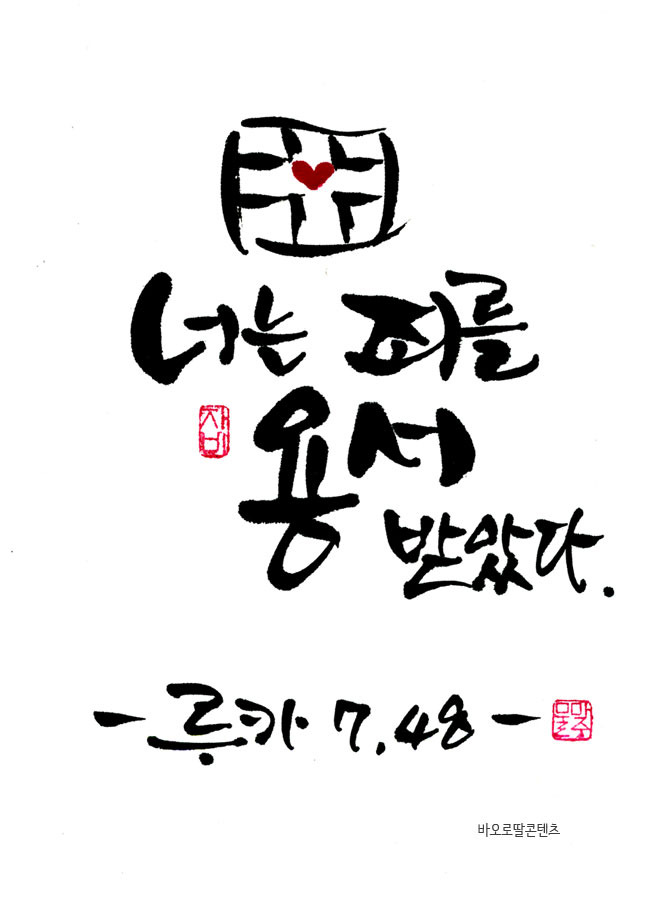 너는 죄를
자비
용서
받았다.
- 루카 7.48 -
바오로딸콘텐츠